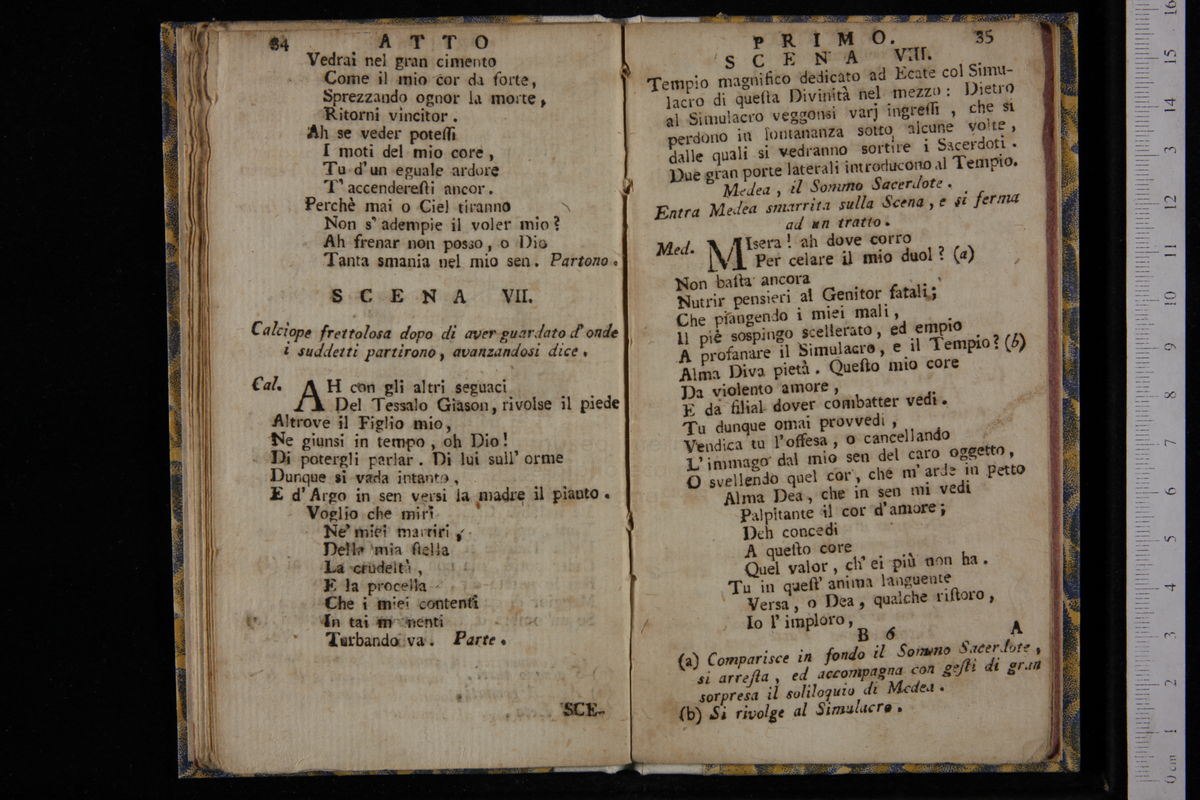 34 ATTO
Vedrai nel gran cimento
Come il mio cor da forte,
Sprezzando ognor la morte,
Ritorni vincitor.
Ah se veder poteſſi
I moti del mio core,
Tu d'un eguale ardore
T'accendereſti ancor.
Perchè mai o Ciel tiranno
Non s'adempie il voler mio?
Ah frenar non posso, o Dio
Tanta smania nel mio sen. Partono.
SCENA VII.
Calciope frettolosa dopo di aver guardato d'onde
i suddetti partirono, avanzandosi dice.
Cal. AH con gli altri seguaci
Del Tessalo Giason, rivolse il piede
Altrove il Figlio mio,
Ne giunsi in tempo, oh Dio!
Di potergli parlar. Di lui sull'orme
Dunque si vada intanto,
E d'Argo in sen versi la madre il pianto.
Voglio che miri
Ne' miei martiri
Della mia ſtella
La crudeltà,
E la procella
Che i miei contenti
In tai m nenti
Turbando va. Parte.
SCE-
PRIMO. 35
SCENA VIII.
Tempio magnifico dedicato ad Ecate col Simu-
lacro di queſta Divinità nel mezzo: Dietro
al Simulacro veggonsi varj ingreſſi, che si
perdono in lontananza sotto alcune volte,
dalle quali si vedranno sortire i Sacerdoti.
Due gran porte laterali introducono al Tempio.
Medea, il Sommo Sacerdote.
Entra Medea smarrita sulla Scena, e si ferma
ad un tratto.
Med. MIsera! ah dove corro
Per celare il mio duol? (a)
Non baſta ancora
Nutrir pensieri al Genitor fatali;
Che piangendo i miei mali,
Il piè sospingo scellerato, ed empio
A profanare il Simulacro, e il Tempio? (b)
Alma Diva pietà. Queſto mio core
Da violento amore,
E da filial dover combatter vedi.
Tu dunque omai provvedi,
Vendica tu l'offesa, o cancellando
L'immago dal mio sen del caro oggetto,
O svellendo quel cor, che m'arde in petto
Alma Dea, che in sen mi vedi
Palpitante il cor d'amore;
Deh concedi
A queſto core
Quel valor, ch'ei più non ha.
Tu in queſt'anima languente
Versa, o Dea, qualche riſtoro,
Io l'imploro,
B 6 A
(a) Comparisce in fondo il Sommo Sacerdote,
si arreſta, ed accompagna con geſti di gran
sorpresa il soliloquio di Medea.
(b) Si rivolge al Simulacro.
16
15
14
3
12
11
10
9
8
7
6
5
4
3
2
1
0 cm